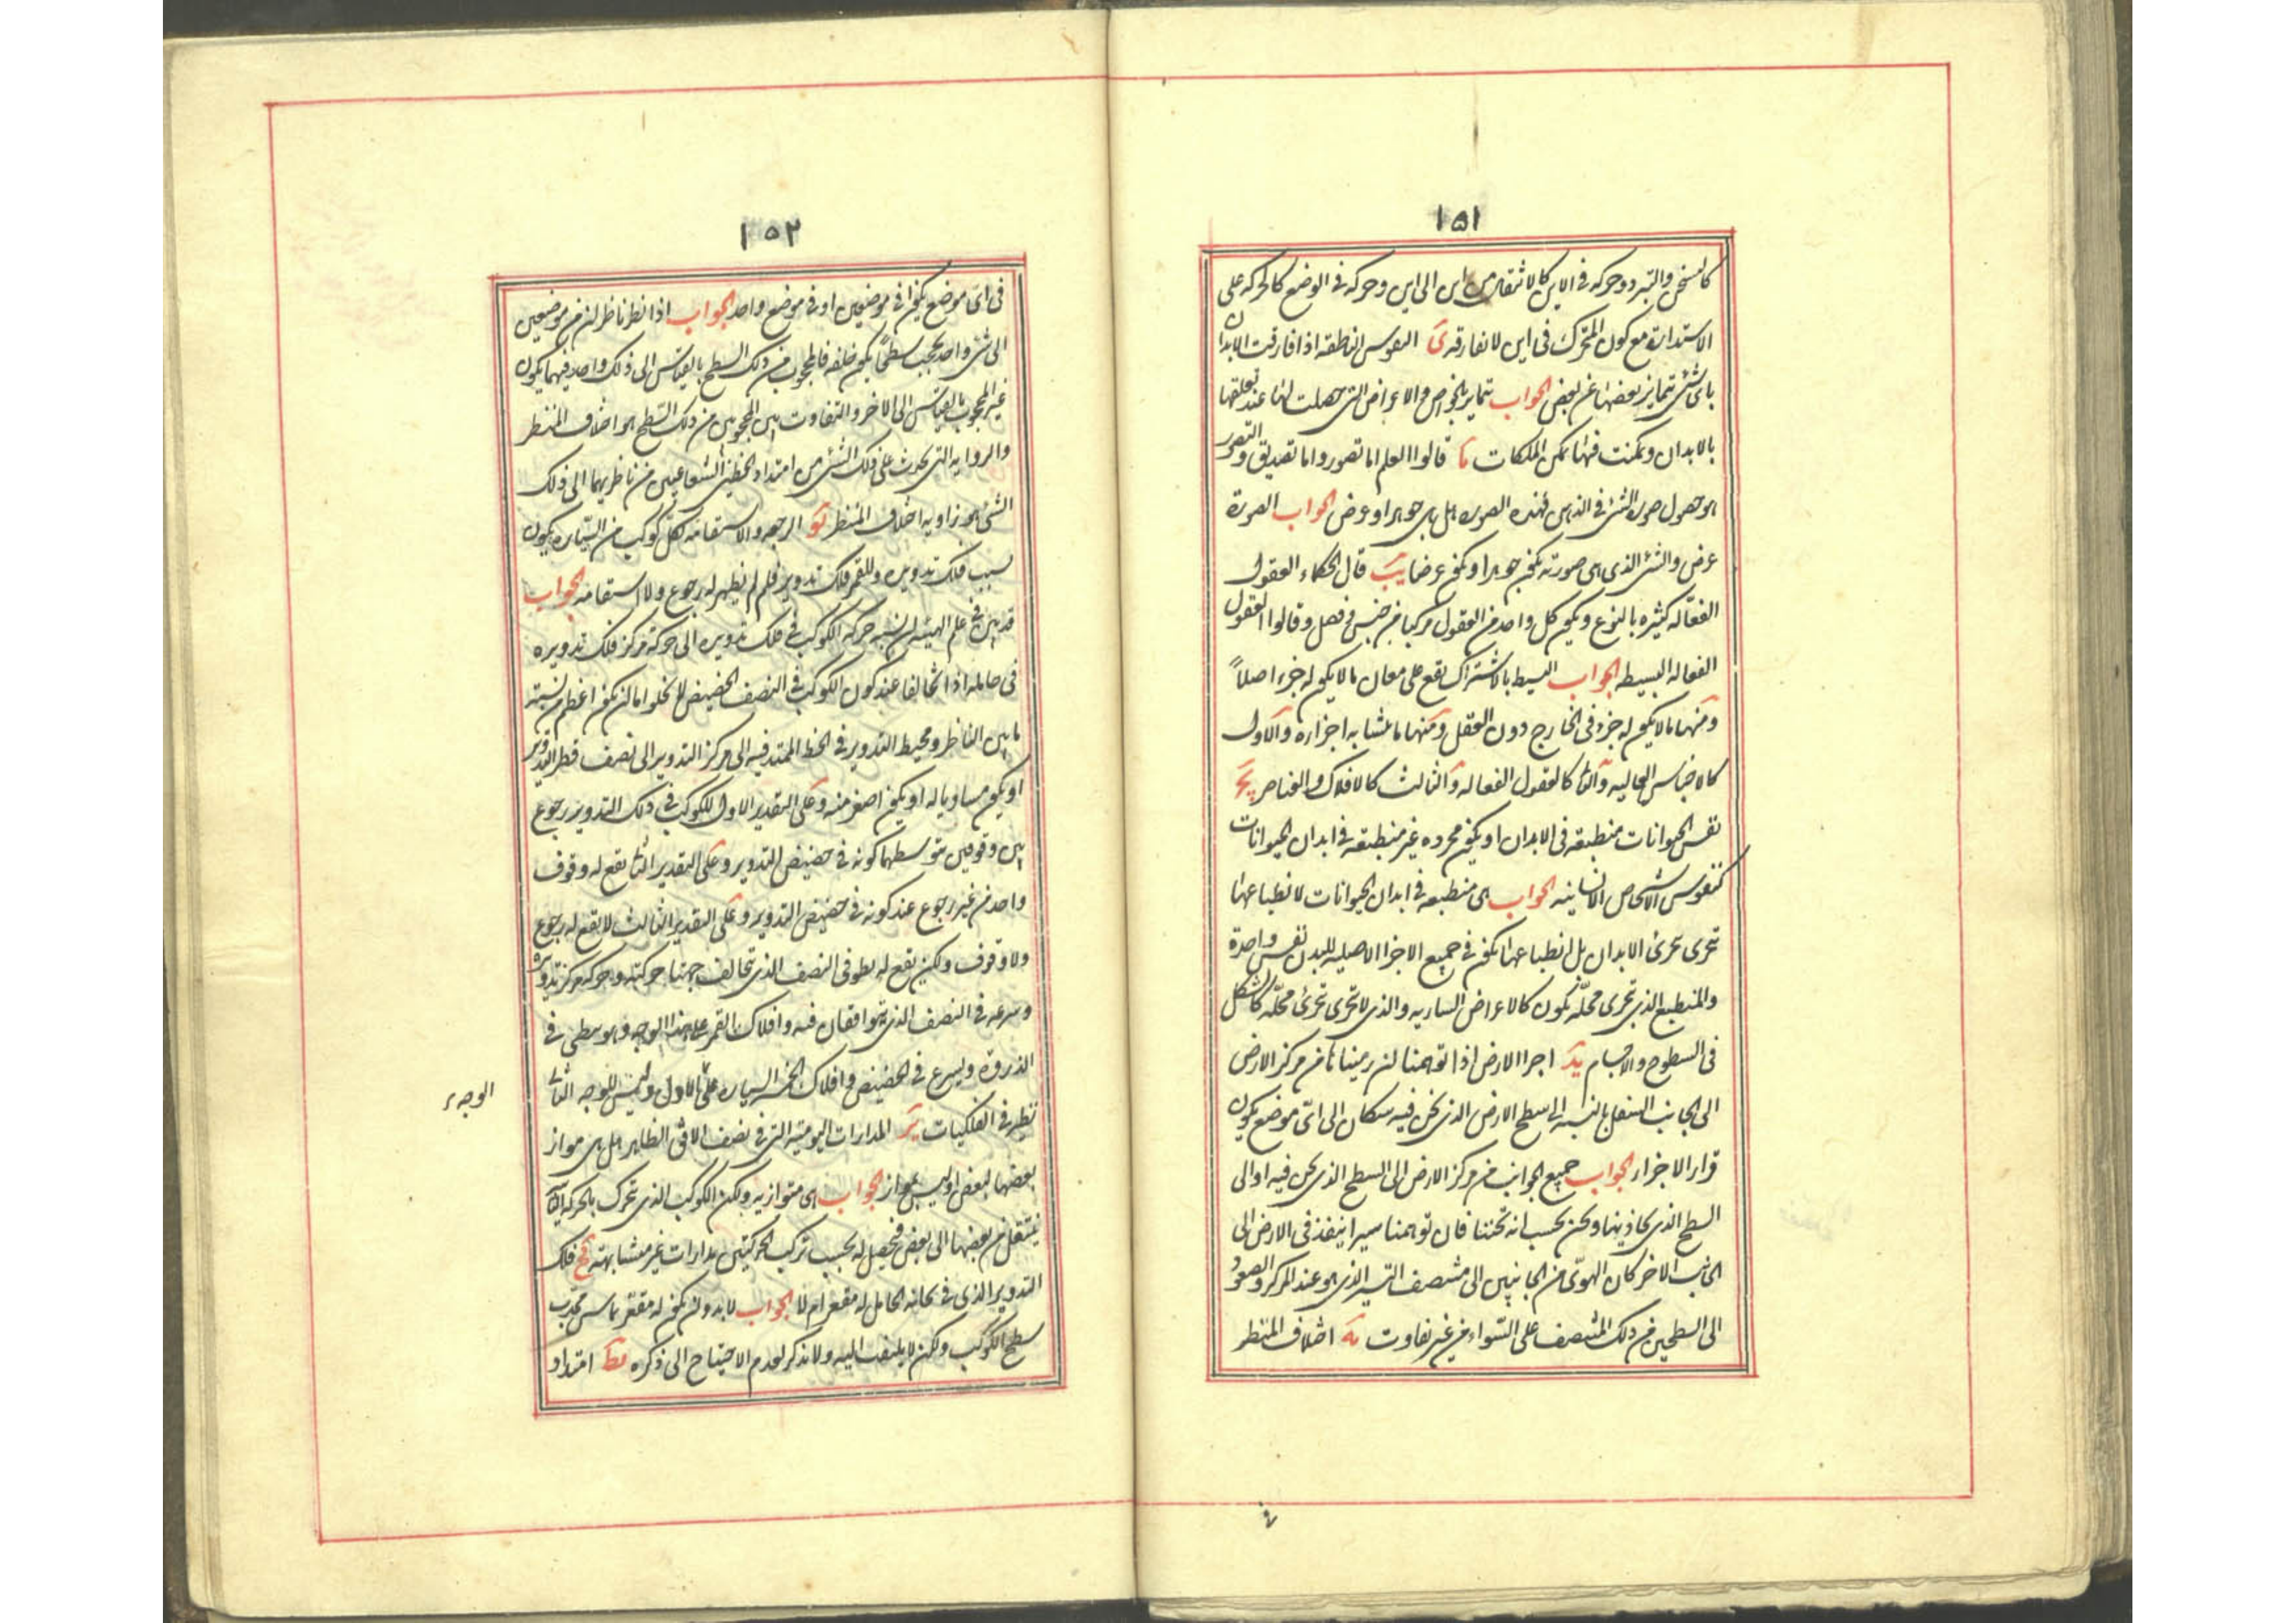 ١٥١
كالتسخن والتبرد وحركه فى الاين كالانتقال من اين الى اين وحركه فى الوضع كالحركه على
الاستدارة مع كون المتحرك فى اين لا يفارقه ى النفوس الناطقه اذا فارقت الابدان
باى شئ تتمايز بعضها عن بعض الجواب تتمايز بالخواص والاعراض التى حصلت لها عند تعلقها
بالابدان وتمكنت فيها تمكن الملكات يا قالوا العلم اما تصور واما تصديق والتصور
هو حصول صورة الشئ فى الذهن فهذه الصوره هل هى جوهر او عرض الجواب الصورة
عرض والشئ الذى هى صورته يكون جوهرا او يكون عرضا يب قال الحكماء العقول
الفعّاله كثيره بالنوع ويكون كل واحد من العقول مركبا من جنس وفصل وقالوا العقول
الفعاله البسيطه الجواب البسيط بالاشتراك يقع على معان ما لا يكون له جزء اصلاً
ومنها ما لا يكون له جزء فى الخارج دون العقل ومنها ما يتشابه اجزاره والاول
كالاجناس العاليه والثانى كالعقول الفعاله والثالث كالافلاك والعناصر يج
نفس الحيوانات منطبعه فى الابدان او يكون مجرده غير منطبعه فى ابدان الحيوانات
كنفوس الاشخاص الانسانيه الجواب هى منطبعه فى ابدان الحيوانات لا نطباعها
تتجزى بتجزئ الابدان بل انطباعها يكون فى جميع الاجزا الاصليه للبدن نفس واحدة
والمنطبع الذى تتجزى بتجزى محلّه يكون كالاعراض الساريه والذى لا تتجزى بتجزئ محلّه كالشكل
فى السطوح والاجسام يد اجزا الارض اذا توهمنا ان رمينا ها من مركز الارض
الى الجانب السفل بالنسبه الى سطح الارض الذى نحن فيه سكان الى اىّ موضع يكون
قرار الاجزاء الجواب جميع الجوانب من مركز الارض الى السطح الذى نحن فيه او الى
السطح الذى يحاذينا ونحن نحسب انه تحتنا فان توهمنا سيرا ينفذ فى الارض الى
الجانب الاخر كان الهوىّ من الجانبين الى منتصف السير الذى هو عند المركز والصعود
الى السطحين من ذلك المنتصف على السواء من غير تفاوت يه اختلاف المنظر
١٥٢
فى اىّ موضع يكون افى موضعين او فى موضع واحد الجواب اذا نظر ناظران من موضعين
الى شئ واحد يحجب سطحًا يكون خلفه فالمحجوب من ذلك السطح بالقياس الى ذلك واحد فيهما يكون
غير المحجوب بالقياس الى الاخر والتفاوت بين المحجوبين من ذلك السّطح هو اختلاف المنظر
والزوايه التى يحدث على ذلك الشئ من امتداد الخطين الشعاعيين من ناظريهما الى ذلك
الشئ هو زاويه اختلاف المنظر يو الرجعه والاستقامه لكل كوكب من السيّاره يكون
لسبب فلك تدويره وللقمر فلك تدوير فلم لم يظهر له رجوع ولا استقامه الجواب
قد بين فى علم الهيئه ان نسبه حركه الكوكب فى فلك تدويره الى حركة مركز فلك تدويره
فى حامله اذا تخالفا عند كون الكوكب فى النصف الحضيض لا يخلو اما ان يكون اعظم من نسبة
ما بين الناظر ومحيط التدوير فى الخط الممتد فيه الى مركز التدوير الى نصف قطر التدوير
او يكون مساويا له او يكون اصغر منه وعلى التقدير الاول للكوكب فى ذلك التدوير رجوع
بين وقوفين يتوسطهما كونه فى حضيض التدوير وعلى التقدير الثانى يقع له وقوف
واحد من غير رجوع عند كونه فى حضيض التدوير وعلى التقدير الثالث لا يقع له رجوع
ولا وقوف ولكن يقع له بطو فى النصف الذى تتخالف جهتا حركته وحركه مركز تدويره
وسرعه فى النصف الذى يتوافقان فيه وافلاك القمر على هذا الوجه وهو بطئ فى
الذروة ويسرع فى الحضيض وافلاك الخمسه السياره على الاول وليس للوجه الثانى
الوجه
نظير فى الفلكيات يز المدارات اليوميّه التى فى نصف الافق الظاهر هل هى مواز
بعضها لبعض او ليس بمواز الجواب هى متوازيه ولكن الكوكب الذى تتحرك بالحركه الثانيه
ينتقل من بعضها الى بعض فيحصل له بحسب تركب الحركتين مدارات غير متشابهة يح فلك
التدوير الذى فى ثخانه الحامل له مقعر ام لا الجواب لابد وان يكون له مقعر يماس محدب
سطح الكوكب ولكن لا يلتفت اليه ولا يذكر لعدم الاحتياج الى ذكره يط امتداد